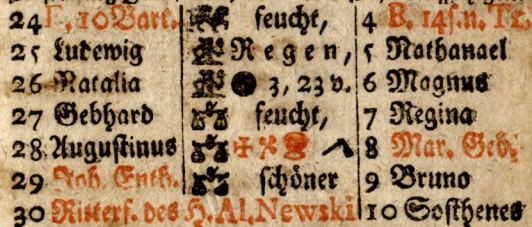 24 F. 10 Barth. feucht, 4 B. 14 s. n. Tr.
25 Ludewig Regen, 5 Nathanael
26 Natalia 3, 23 v. 6 Magnus
27 Gebhard feucht, 7 Regina
28 Augustinus 8 Mar. Geb.
29 Joh. Enth. schöner 9 Bruno
30 Ritterf. des H. Al. Newski 10 Sosthenes